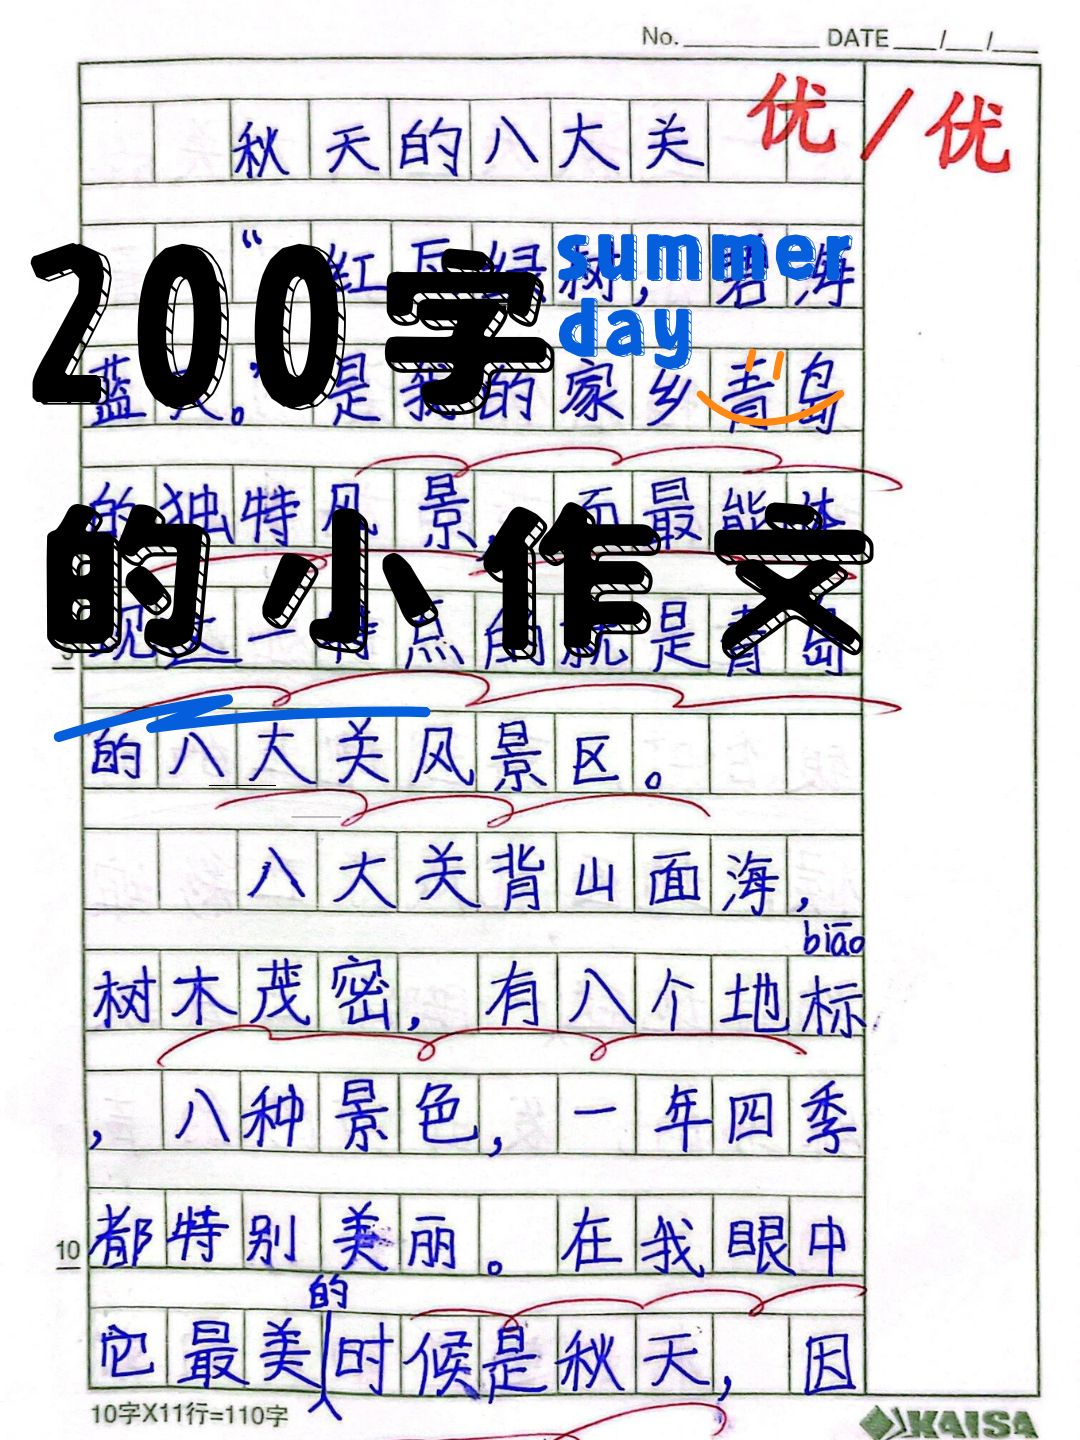 No. DATE / /
优/优
秋天的八大关
“红瓦绿树，碧海
蓝天。”是我的家乡青岛
的独特风景，而最能体
现这一特点的就是青岛
的八大关风景区。
八大关背山面海，
biāo
树木茂密，有八个地标
，八种景色，一年四季
都特别美丽。在我眼中
10
的
它最美时候是秋天，因
10字X11行=110字
KAISA
200字
summer
day
的小作文